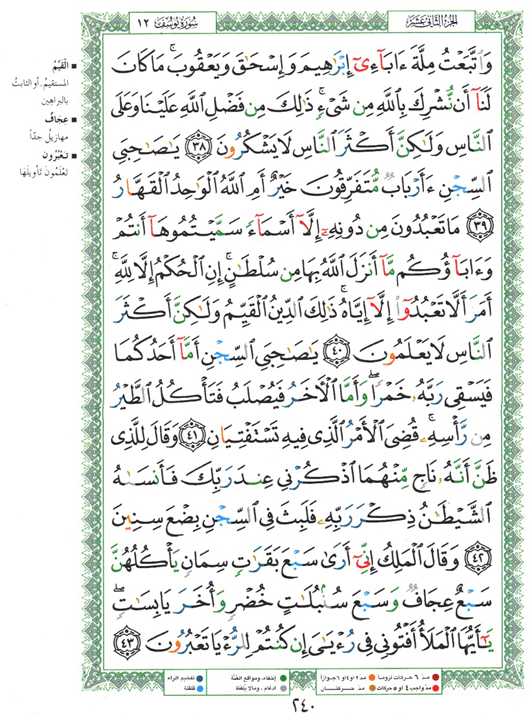 الجزء الثاني عشر
سورة يوسف ١٢
وَاتَّبَعْتُ مِلَّةَ ءَابَآءِىٓ إِبْرَٰهِيمَ وَإِسْحَٰقَ وَيَعْقُوبَ ۚ مَا كَانَ
لَنَآ أَن نُّشْرِكَ بِاللَّهِ مِن شَىْءٍ ۚ ذَٰلِكَ مِن فَضْلِ اللَّهِ عَلَيْنَا وَعَلَى
النَّاسِ وَلَٰكِنَّ أَكْثَرَ النَّاسِ لَا يَشْكُرُونَ ٣٨ يَٰصَٰحِبَىِ
السِّجْنِ ءَأَرْبَابٌ مُّتَفَرِّقُونَ خَيْرٌ أَمِ اللَّهُ الْوَٰحِدُ الْقَهَّارُ
٣٩ مَا تَعْبُدُونَ مِن دُونِهِۦٓ إِلَّآ أَسْمَآءً سَمَّيْتُمُوهَآ أَنتُمْ
وَءَابَآؤُكُم مَّآ أَنزَلَ اللَّهُ بِهَا مِن سُلْطَٰنٍ ۚ إِنِ الْحُكْمُ إِلَّا لِلَّهِ ۚ
أَمَرَ أَلَّا تَعْبُدُوٓا۟ إِلَّآ إِيَّاهُ ۚ ذَٰلِكَ الدِّينُ الْقَيِّمُ وَلَٰكِنَّ أَكْثَرَ
النَّاسِ لَا يَعْلَمُونَ ٤٠ يَٰصَٰحِبَىِ السِّجْنِ أَمَّآ أَحَدُكُمَا
فَيَسْقِى رَبَّهُۥ خَمْرًا ۖ وَأَمَّا الْءَاخَرُ فَيُصْلَبُ فَتَأْكُلُ الطَّيْرُ
مِن رَّأْسِهِۦ ۚ قُضِىَ الْأَمْرُ الَّذِى فِيهِ تَسْتَفْتِيَانِ ٤١ وَقَالَ لِلَّذِى
ظَنَّ أَنَّهُۥ نَاجٍ مِّنْهُمَا اذْكُرْنِى عِندَ رَبِّكَ فَأَنسَىٰهُ
الشَّيْطَٰنُ ذِكْرَ رَبِّهِۦ فَلَبِثَ فِى السِّجْنِ بِضْعَ سِنِينَ
٤٢ وَقَالَ الْمَلِكُ إِنِّىٓ أَرَىٰ سَبْعَ بَقَرَٰتٍ سِمَانٍ يَأْكُلُهُنَّ
سَبْعٌ عِجَافٌ وَسَبْعَ سُنۢبُلَٰتٍ خُضْرٍ وَأُخَرَ يَابِسَٰتٍ ۖ
يَٰٓأَيُّهَا الْمَلَأُ أَفْتُونِى فِى رُءْيَٰىَ إِن كُنتُمْ لِلرُّءْيَا تَعْبُرُونَ ٤٣
■ الْقَيِّمُ
المستقيمُ. أو الثابتُ
بالبراهينِ
■ عِجَافٌ
مهازيلُ جدّاً
■ تَعْبُرُونَ
تعْلَمُونَ تأويلَها
مدّ ٦ حركات لزوماً
مدّ ٢ أو ٤ أو ٦ جوازاً
إخفاء، ومواقع الغُنَّة
تفخيم الراء
مدّ واجب ٤ أو ٥ حركات
مدّ حركتان
ادغام، وما لا يُلفَظ
قلقلة
٢٤٠